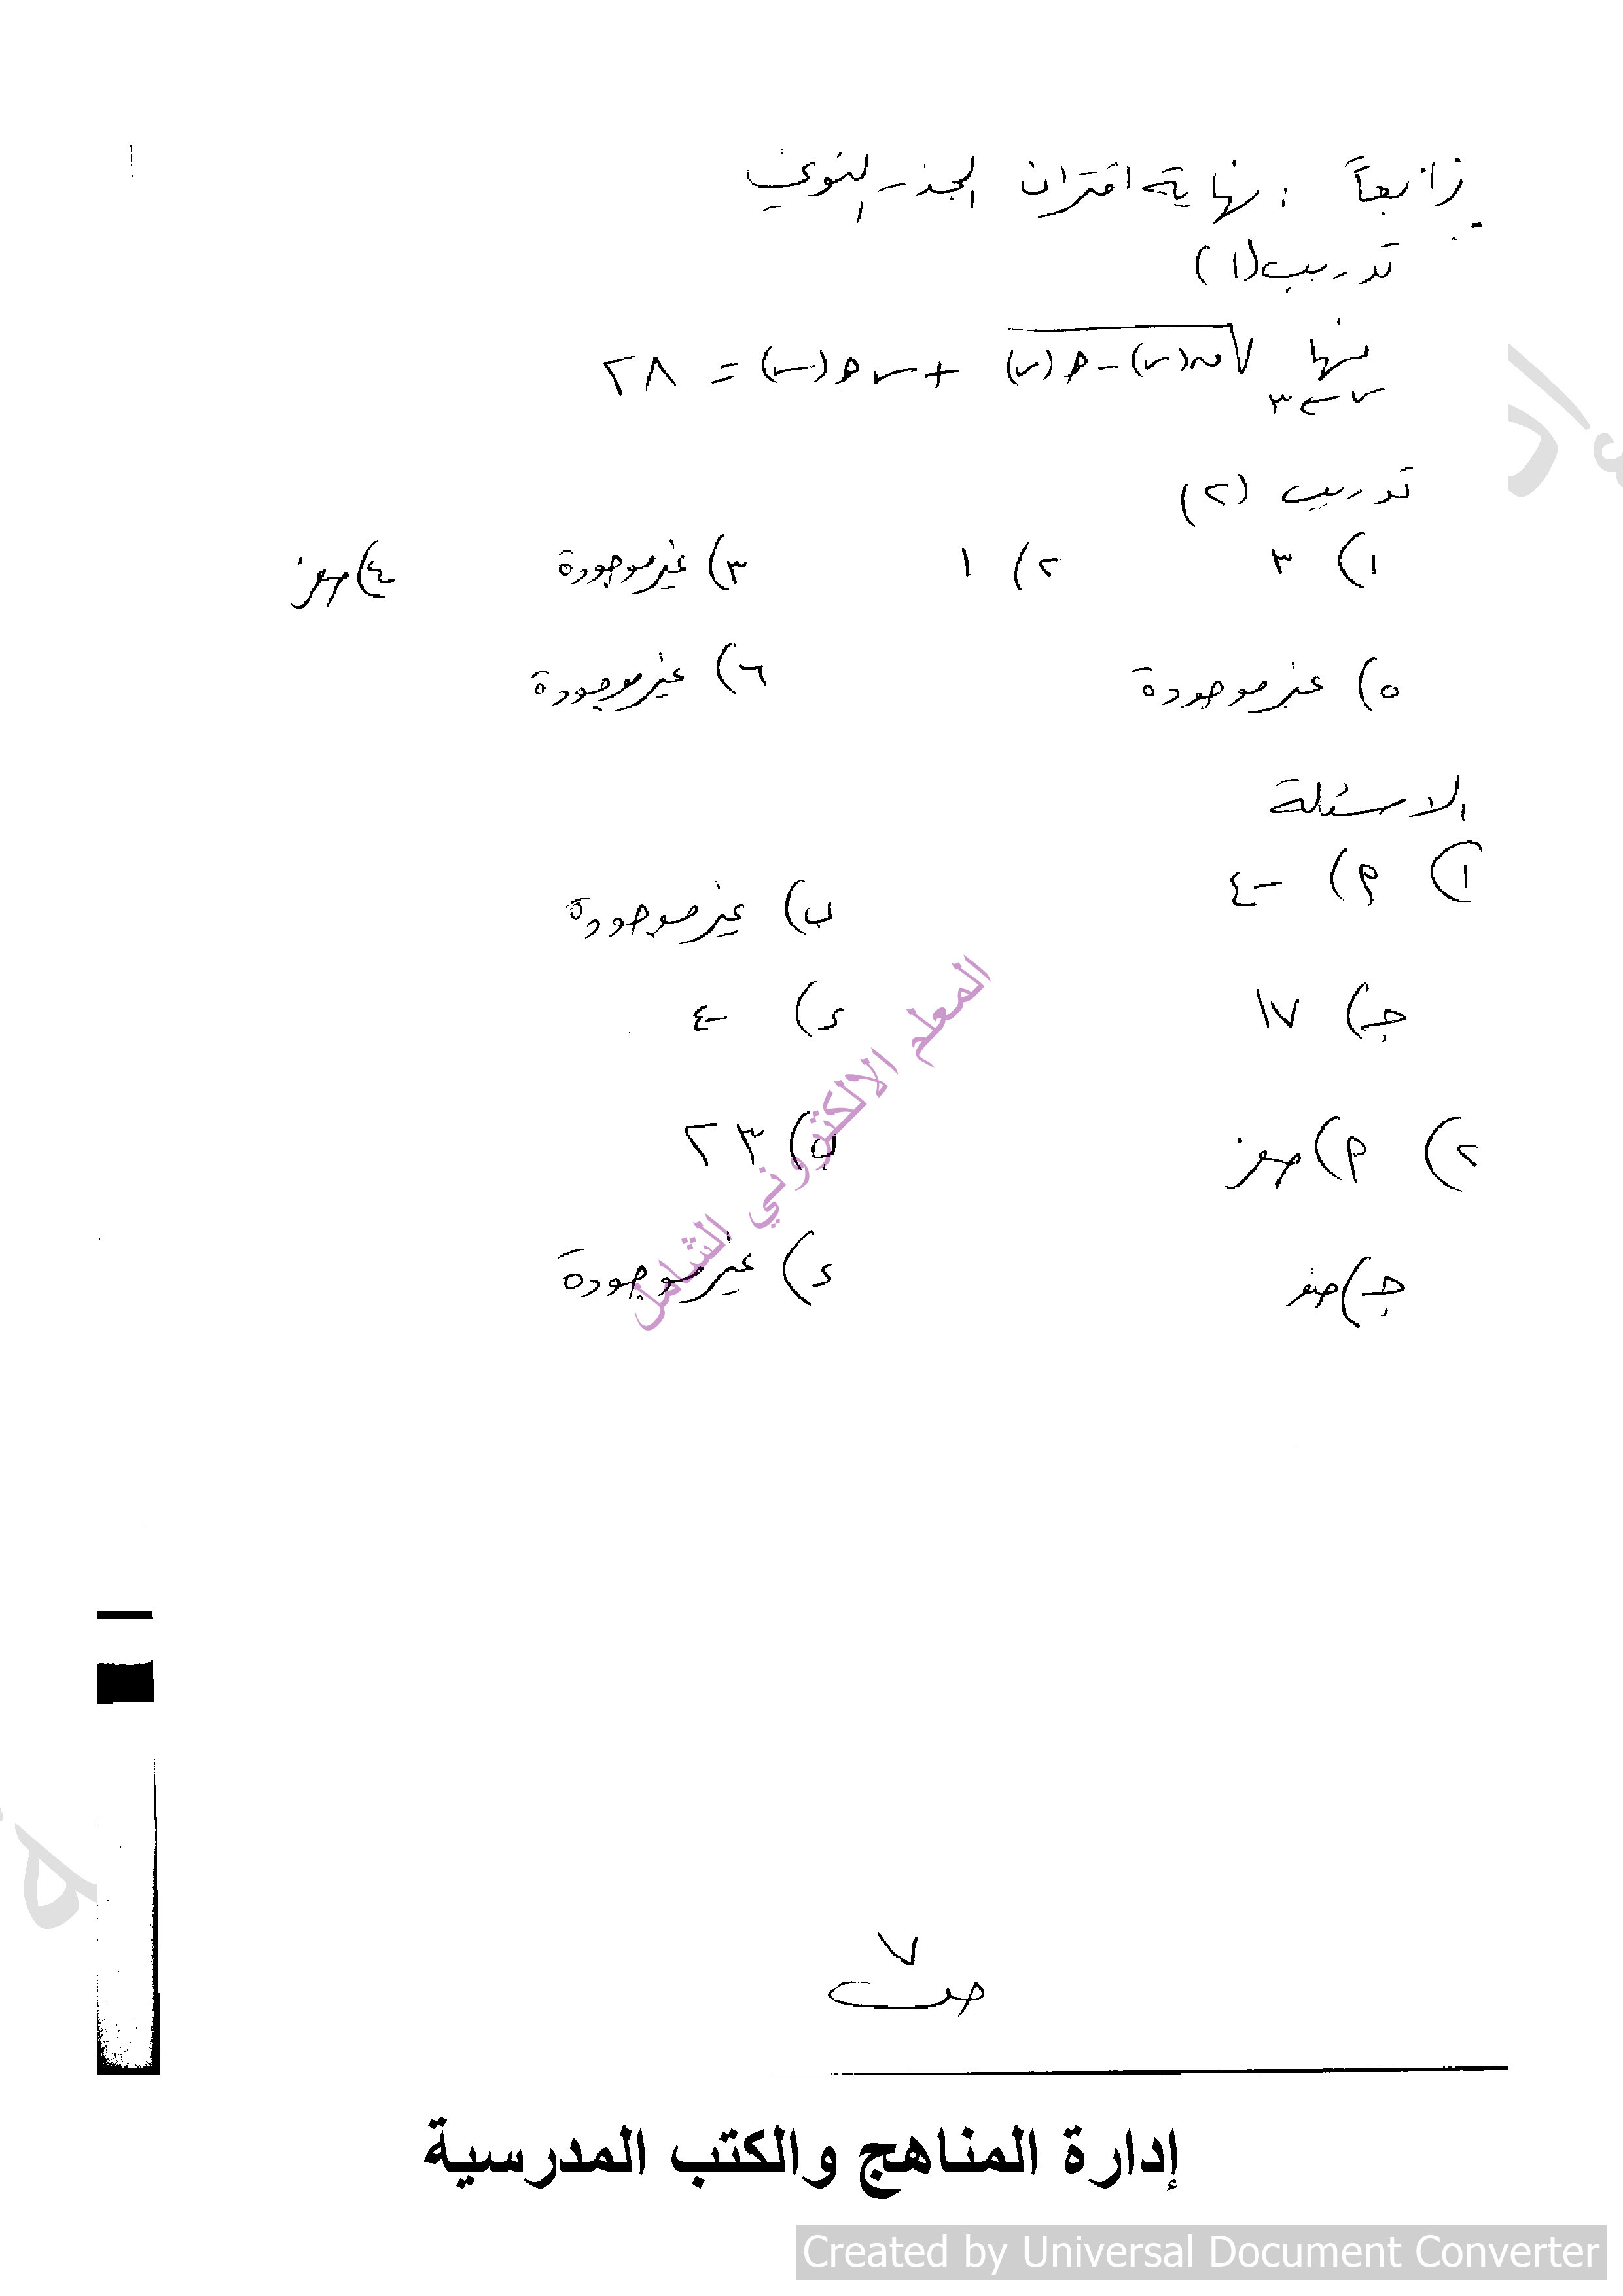 رابعاً : نهاية اقتران الجذر النوني
تدريب (١)
نها س←٣ √ق(س) - هـ(س) + س هـ(س) = ٢٨
تدريب (٢)
١) ٣ ٢) ١ ٣) غير موجودة ٤) صفر
٥) غير موجودة ٦) غير موجودة
الاسئلة
١) م) -٤ ب) غير موجودة
جـ) ١٧ د) -٤
٢) م) صفر ب) ٢٣
جـ) صفر د) غير موجودة
المعلم الالكتروني الشامل
٧
ص
إدارة المناهج والكتب المدرسية
Created by Universal Document Converter